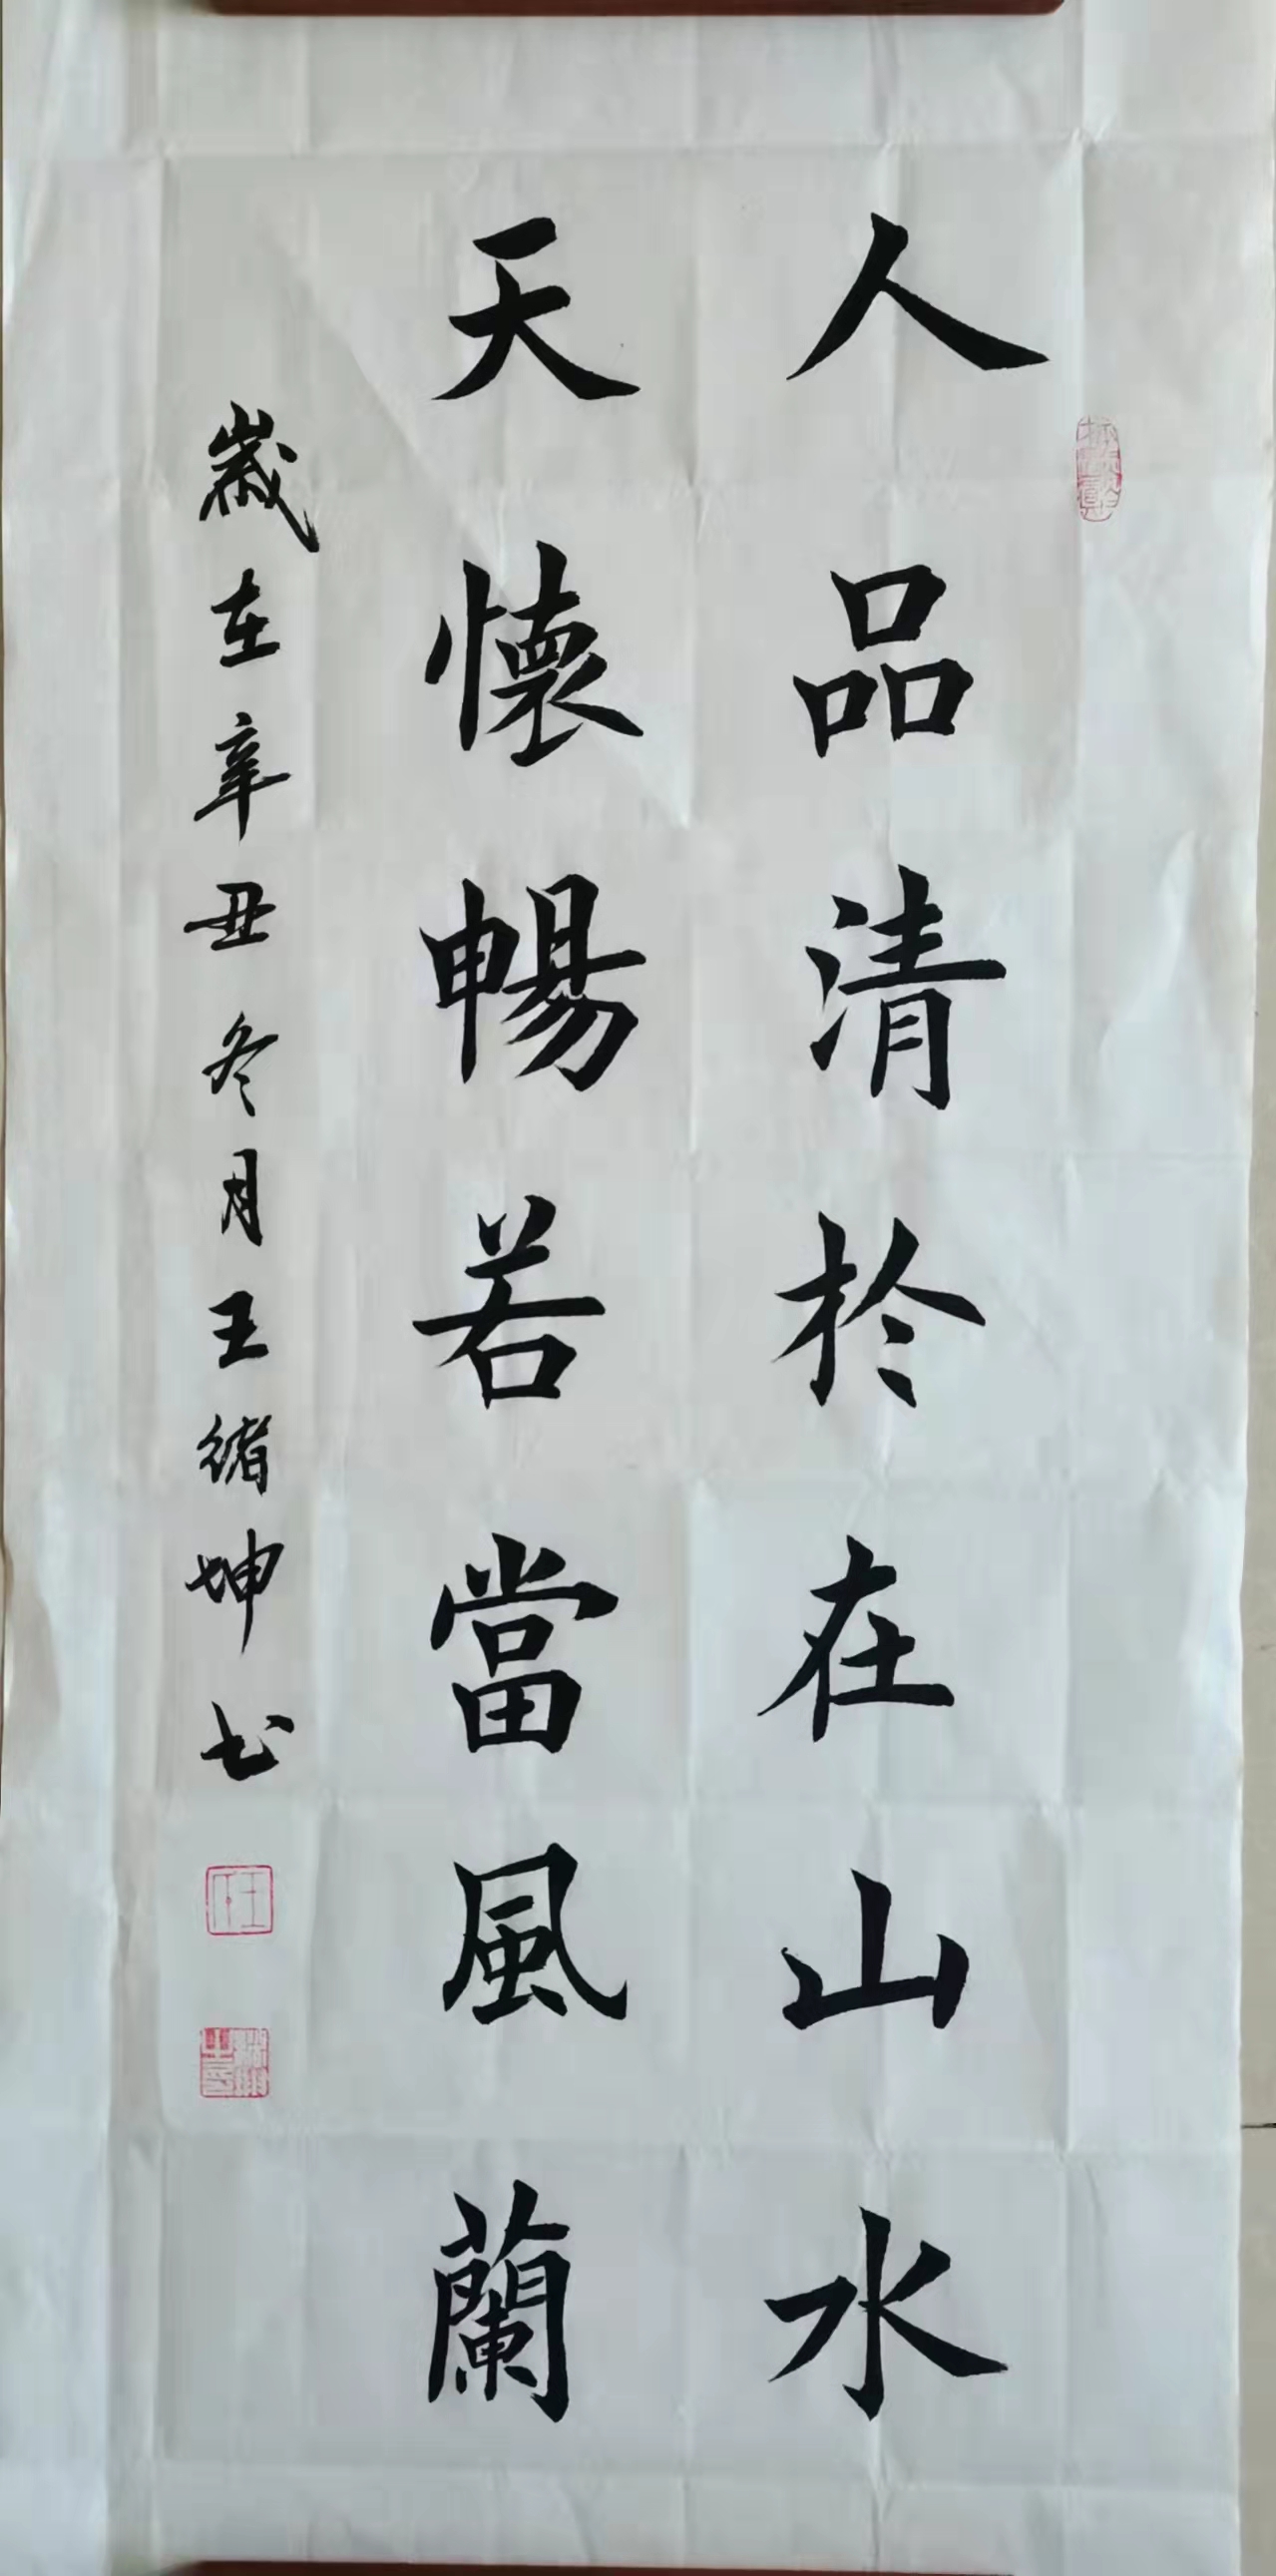 人品清於在山水
天懷暢若當風蘭
歲在辛丑冬月王緒坤书